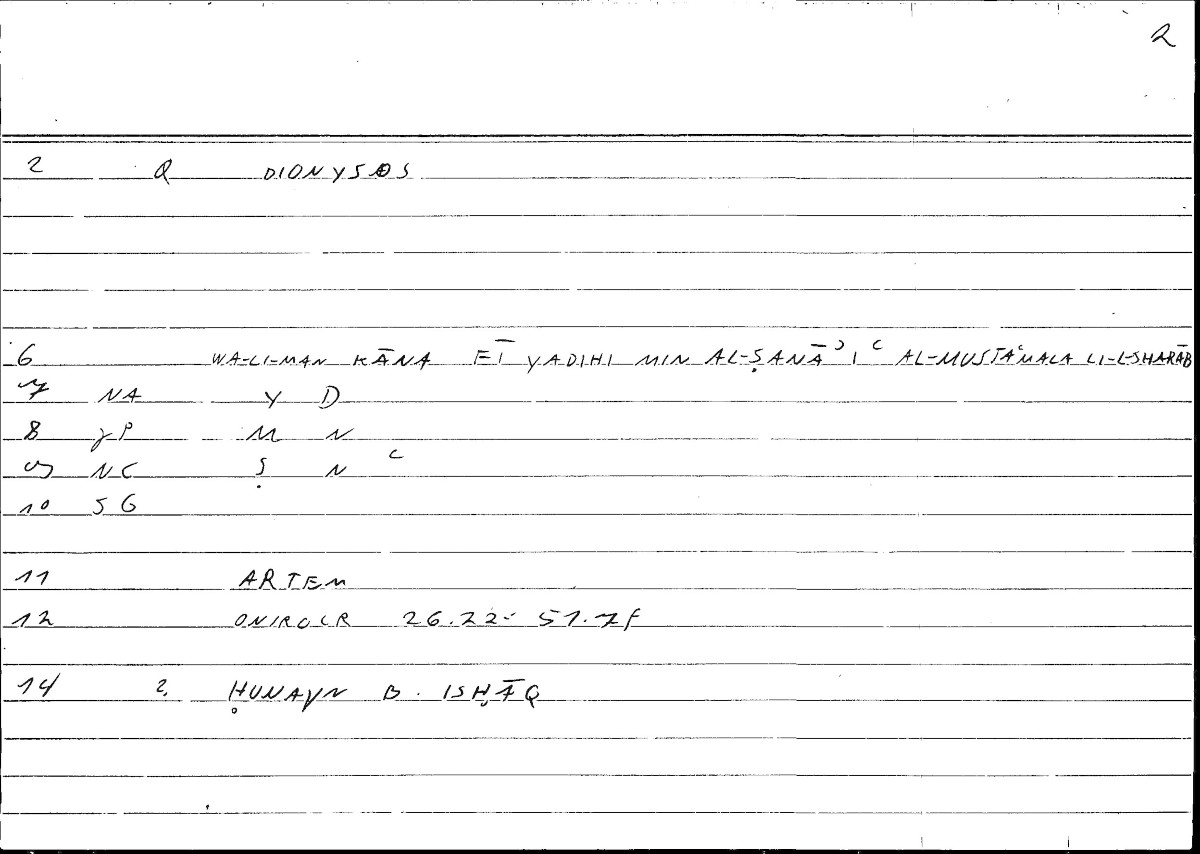 2
2 Q DIONYSOS
6 WA-LI-MAN KĀNA FĪ YADIHI MIN AL-ṢANĀʾIʿ AL-MUSTAʿMALA LI-L-SHARĀB
7 NA Y D
8 γP M N
9 NC Ṣ N ʿ
10 SG
11 ARTEM
12 ONIROCR 26.22- 51.7f
14 2. ḤUNAYN B. ISḤĀQ